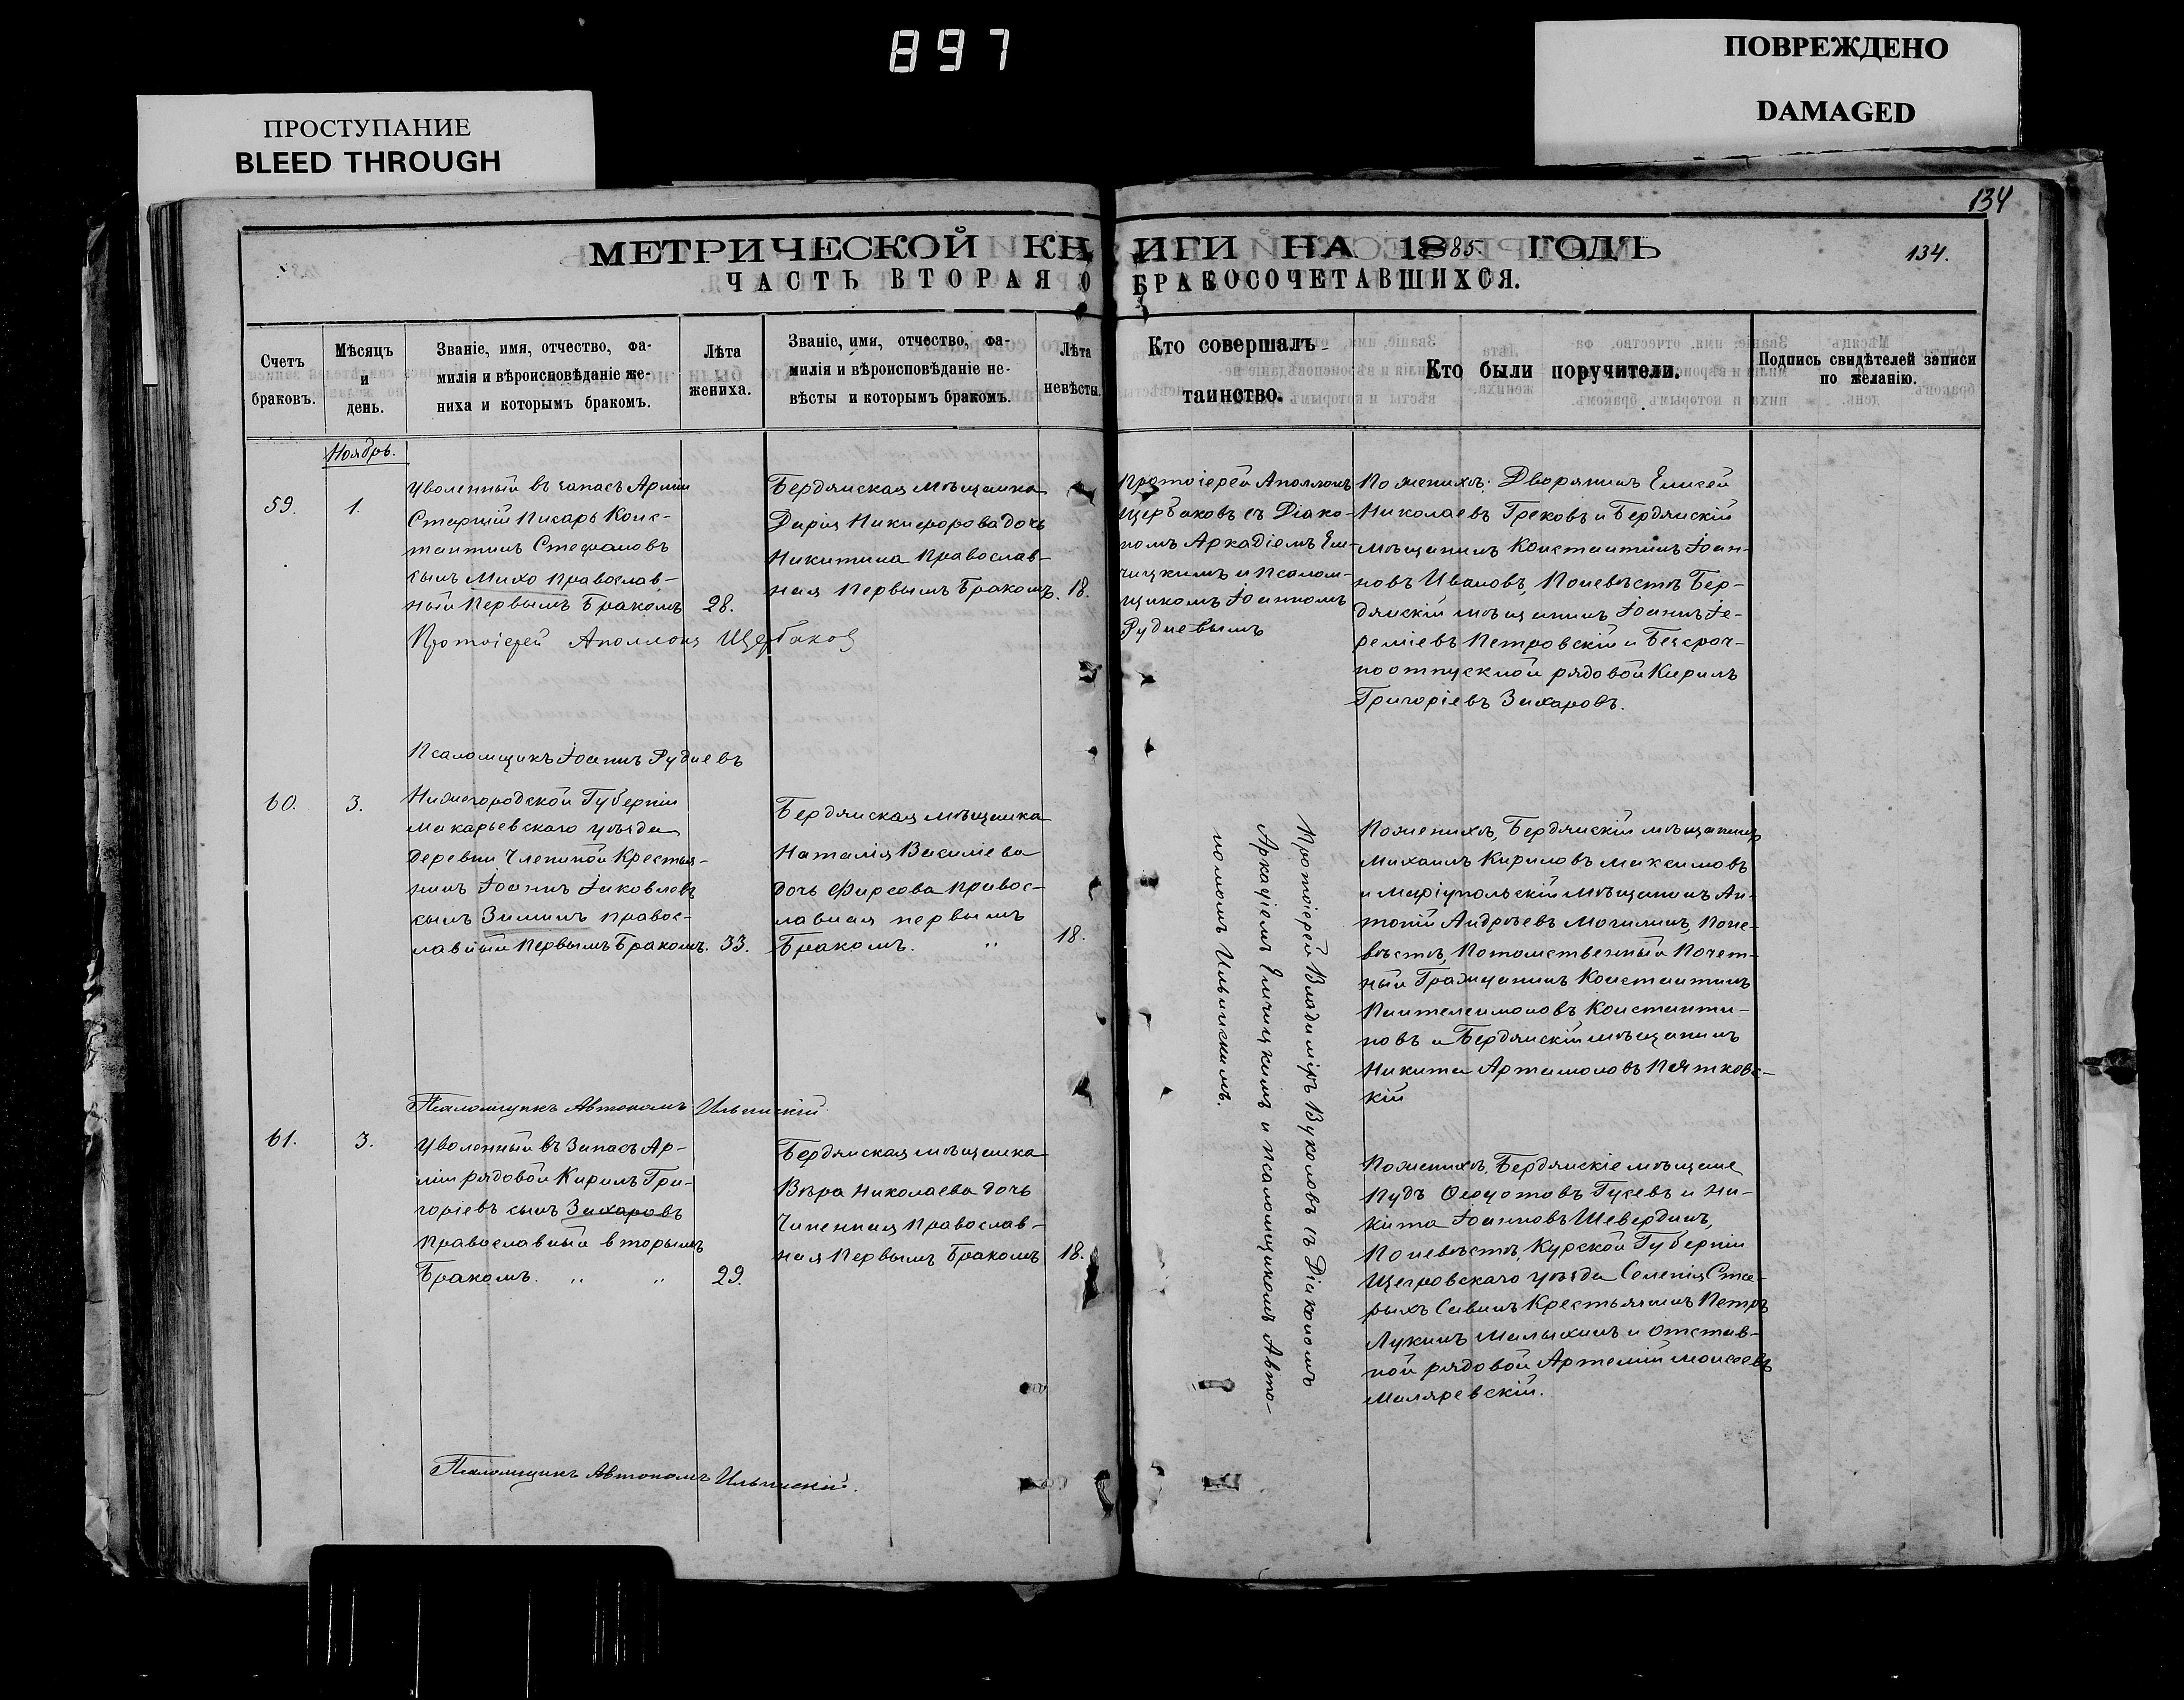 897
ПРОСТУПАНИЕ
BLEED THROUGH
ПОВРЕЖДЕНО
DAMAGED
134
МЕТРИЧЕСКОЙ КНИГИ НА 1885 ГОДЪ
134.
ЧАСТЬ ВТОРАЯ О БРАКОСОЧЕТАВШИХСЯ.
Счетъ
браковъ.
Мѣсяцъ
и
день.
Званіе, имя, отчество, фа-
милія и вѣроисповѣданіе же-
ниха и которымъ бракомъ.
Лѣта
жениха.
Званіе, имя, отчество, фа-
милія и вѣроисповѣданіе не-
вѣсты и которымъ бракомъ.
Лѣта
невѣсты.
Кто совершалъ
таинство.
Кто были поручители.
Подпись свидѣтелей записи
по желанію.
Ноябрь.
59.
1.
Уволенный въ запасъ Арміи
Старшій Писарь Конс-
тантинъ Стефановъ
сынъ Михо Православ-
ный Первымъ Бракомъ
28.
Бердянская мѣщанка
Дарія Никифорова дочь
Никитина Православ-
ная Первымъ Бракомъ.
18.
Протоіерей Аполлонъ
Щербаковъ съ Діако-
номъ Аркадіемъ Ел-
чицкимъ и Псалом-
щикомъ Іоанномъ
Рудневымъ
По женихѣ: Дворянинъ Елисей
Николаевъ Грековъ и Бердянскій
мѣщанинъ Константинъ Іоан-
новъ Ивановъ, По невѣстѣ Бер-
дянскій мѣщанинъ Іоаннъ Іе-
реміевъ Петровскій и Безсроч-
ноотпускной рядовой Кирилъ
Григоріевъ Захаровъ.
Протоіерей Аполлонъ Щербаковъ
Псаломщикъ Іоаннъ Рудневъ
60.
3.
Нижегородской Губерніи
Макарьевскаго уѣзда
деревни Крестья-
нинъ Іоаннъ Іаковлевъ
сынъ Зиминъ правос-
лавный Первымъ Бракомъ.
33.
Бердянская мѣщанка
Наталія Василіева
дочь Фирсова правос-
лавная первымъ
Бракомъ. "
18.
Протоіерей Владиміръ Вуколовъ съ Діакономъ
Аркадіемъ Елчицкимъ и псаломщикомъ Авто-
номомъ Ильинскимъ.
По женихѣ, Бердянскій мѣщанинъ
Михаилъ Кириловъ Максимовъ
и Маріупольскій мѣщанинъ Ан-
тоній Андреевъ Могилинъ, По не-
вѣстѣ, Потомственный Почет-
ный Гражданинъ Константинъ
Пантелеимоновъ Константи-
новъ и Бердянскій мѣщанинъ
Никита Артамоновъ Пятковс-
кій
Псаломщикъ Автономъ Ильинскій
61.
3.
Уволенный въ Запасъ Ар-
міи рядовой Кирилъ Гри-
горіевъ сынъ Захаровъ
Православный вторымъ
Бракомъ. " "
29.
Бердянская мѣщанка
Вѣра Николаева дочь
Православ-
ная Первымъ Бракомъ
18.
По женихѣ, Бердянскіе мѣщане
Пудъ Гусевъ и Ни-
кита Іоанновъ Шевердинъ,
По невѣстѣ, Курской Губерніи
Щегровскаго уѣзда Селенія Ста-
рыхъ Савинъ Крестьянинъ Петръ
Лукинъ Малыхинъ и отстав-
ной рядовой Артемій Моисеевъ
Маляревскій.
Псаломщикъ Автономъ Ильинскій.